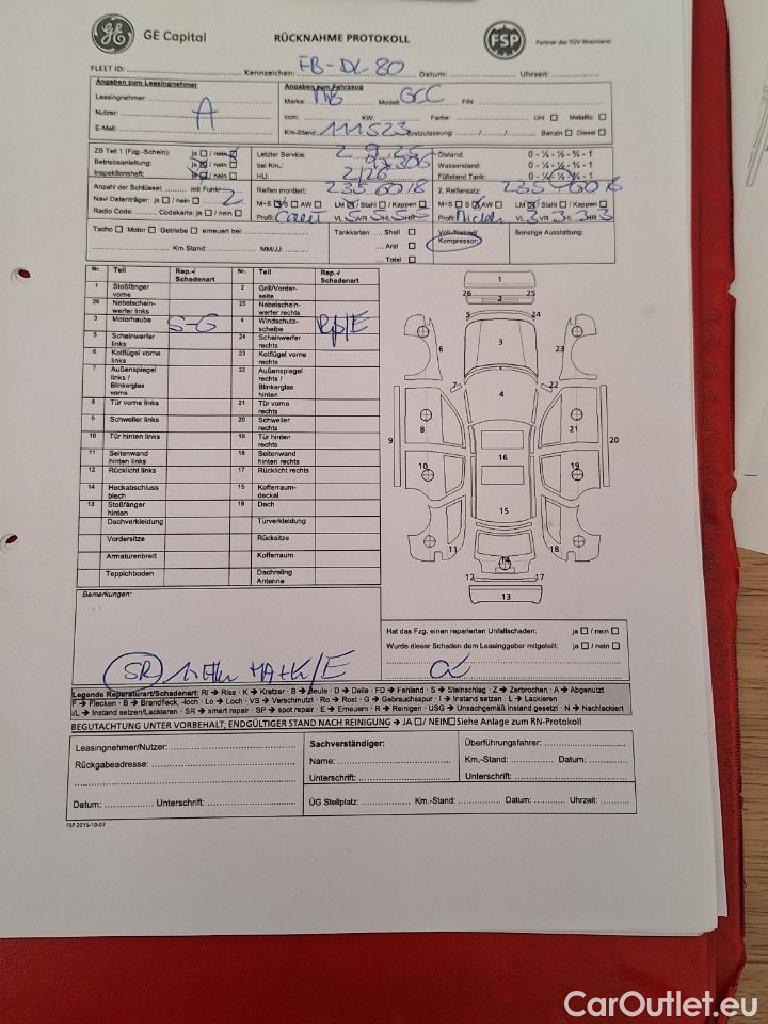 GE Capital
RÜCKNAHME PROTOKOLL
FSP
Partner des TÜV Rheinland
FLEET ID: Kennzeichen: FB-DL 80 Datum: Uhrzeit:
Angaben zum Leasingnehmer
Leasingnehmer:
Nutzer: A
E-Mail:
Angaben zum Fahrzeug
Marke: MB Modell: GLC FIN:
ccm: KW: Farbe: Uni Metallic
Km-Stand: 111523 Erstzulassung: Benzin Diesel
ZB Teil 1 (Fzg.-Schein): ja / nein
Betriebsanleitung: ja / nein
Inspektionsheft: ja / nein
Letzter Service:
bei Km.:
HU: 2/26
Ölstand: 0 - ¼ - ½ - ¾ - 1
Wasserstand: 0 - ¼ - ½ - ¾ - 1
Füllstand Tank: 0 - ¼ - ½ - ¾ - 1
Anzahl der Schlüssel: mit Funk: 2
Navi Datenträger: ja / nein
Radio Code: Codekarte: ja / nein
Reifen montiert: 235 60 18
M+S S AW LM / Stahl / Kappen
Profil: VL 5 VR 5 HL 5 HR 5
2. Reifensatz: 235 60 18
M+S S AW LM / Stahl / Kappen
Profil: VL 3 VR 3 HL 3 HR 3
Tacho Motor Getriebe erneuert bei:
Km Stand: MM/JJ:
Tankkarten: Shell
Aral
Total
Voll-/Notrad/
Kompressor:
Sonstige Ausstattung:
Nr. Teil Rep.-/ Schadenart Nr. Teil Rep.-/ Schadenart
1 Stoßfänger vorne 2 Grill/Vorderseite
26 Nebelscheinwerfer links 25 Nebelscheinwerfer rechts
3 Motorhaube S-G 4 Windschutzscheibe Rp/E
5 Scheinwerfer links 24 Scheinwerfer rechts
6 Kotflügel vorne links 23 Kotflügel vorne rechts
7 Außenspiegel links / Blinkerglas vorne 22 Außenspiegel rechts / Blinkerglas hinten
8 Tür vorne links 21 Tür vorne rechts
9 Schweller links 20 Schweller rechts
10 Tür hinten links 19 Tür hinten rechts
11 Seitenwand hinten links 18 Seitenwand hinten rechts
12 Rücklicht links 17 Rücklicht rechts
14 Heckabschlussblech 15 Kofferraumdeckel
13 Stoßfänger hinten 16 Dach
Dachverkleidung Türverkleidung
Vordersitze Rücksitze
Armaturenbrett Kofferraum
Teppichboden Dachreling Antenne
1
26 2 25
5 24
6 3 23
7 22
4
8 21
9 20
16
10 19
15
11 18
14
12 17
13
Bemerkungen:
SR
Hat das Fzg. einen reparierten Unfallschaden: ja / nein
Wurde dieser Schaden dem Leasinggeber mitgeteilt: ja / nein
Legende Reparaturart/Schadenart: RI → Riss · K → Kratzer · B → Beule · D → Delle · FD → Fehlend · S → Steinschlag · Z → Zerbrochen · A → Abgenutzt
F → Flecken · B → Brandfleck, -loch · Lo → Loch · VS → Verschmutzt · Ro → Rost · G → Gebrauchsspur · I → Instand setzen · L → Lackieren
I/L → Instand setzen/Lackieren · SR → smart repair · SP → spot repair · E → Erneuern · R → Reinigen · USG → Unsachgemäß instand gesetzt · N → Nachlackiert
BEGUTACHTUNG UNTER VORBEHALT; ENDGÜLTIGER STAND NACH REINIGUNG → JA / NEIN Siehe Anlage zum RN-Protokoll
Leasingnehmer/Nutzer:
Rückgabeadresse:
Datum: Unterschrift:
Sachverständiger:
Name:
Unterschrift:
Überführungsfahrer:
Km.-Stand: Datum:
Unterschrift:
ÜG Stellplatz: Km.-Stand: Datum: Uhrzeit:
FSP 2015-10-09
CarOutlet.eu